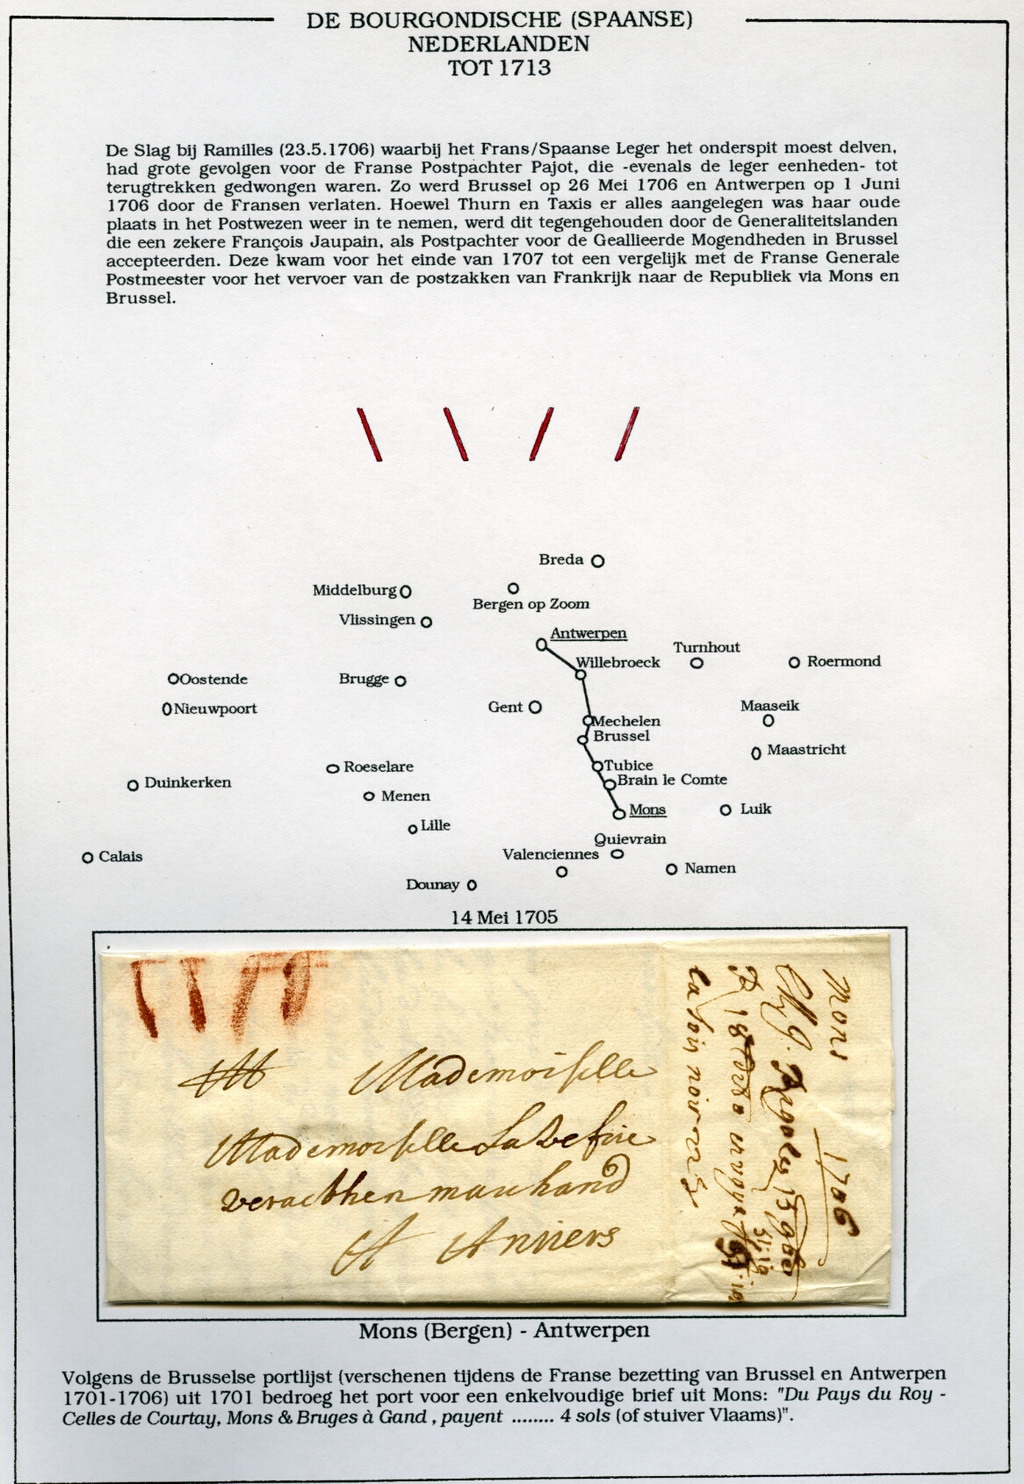 DE BOURGONDISCHE (SPAANSE)
NEDERLANDEN
TOT 1713
De Slag bij Ramilles (23.5.1706) waarbij het Frans/Spaanse Leger het onderspit moest delven,
had grote gevolgen voor de Franse Postpachter Pajot, die -evenals de leger eenheden- tot
terugtrekken gedwongen waren. Zo werd Brussel op 26 Mei 1706 en Antwerpen op 1 Juni
1706 door de Fransen verlaten. Hoewel Thurn en Taxis er alles aangelegen was haar oude
plaats in het Postwezen weer in te nemen, werd dit tegengehouden door de Generaliteitslanden
die een zekere François Jaupain, als Postpachter voor de Geallieerde Mogendheden in Brussel
accepteerden. Deze kwam voor het einde van 1707 tot een vergelijk met de Franse Generale
Postmeester voor het vervoer van de postzakken van Frankrijk naar de Republiek via Mons en
Brussel.
Breda
Middelburg
Bergen op Zoom
Vlissingen
Antwerpen
Turnhout
Willebroeck
Roermond
Oostende
Brugge
Nieuwpoort
Gent
Maaseik
Mechelen
Brussel
Maastricht
Tubice
Roeselare
Brain le Comte
Duinkerken
Menen
Mons
Luik
Lille
Quievrain
Calais
Valenciennes
Namen
Dounay
14 Mei 1705
M Mademoiselle
Mademoiselle
marchand
A Anvers
Mons
1706
Mons (Bergen) - Antwerpen
Volgens de Brusselse portlijst (verschenen tijdens de Franse bezetting van Brussel en Antwerpen
1701-1706) uit 1701 bedroeg het port voor een enkelvoudige brief uit Mons: "Du Pays du Roy -
Celles de Courtay, Mons & Bruges à Gand , payent ........ 4 sols (of stuiver Vlaams)".